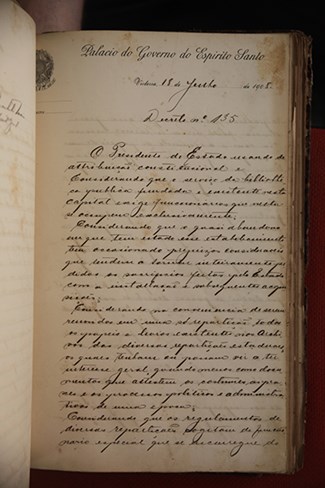 Palacio do Governo do Espirito Santo
Victoria, 18 de Julho de 1908.
Decreto nº 135
O Presidente do Estado usando de
attribuição constitucional e
Considerando que o serviço de bibliothe
ca publica fundada e existente nesta
Capital exige funccionarios que n'esta
se occupem exclusivamente;
Considerando que o quasi abandono
em que tem estado esse estabelecimento
tem occasionado prejuizos consideraveis
que tendem a tornar inteiramente per
didos os sacrificios feitos pelo Estado
com a installação e subsequentes acqui
sições;
Considerando na conveniencia de serem
reunidos em uma só repartição todos
os papeis e livros existentes nos Archi
vos das diversas repartições estadoaes,
os quaes tenham ou possam vir a ter
interesse geral, quando menos como docu
mentos que attestem os costumes,
e os processos politicos e administra
tivos de uma epoca;
Considerando que os regulamentos de
diversas repartições cogitam de funccio
nario especial que se encarregue do